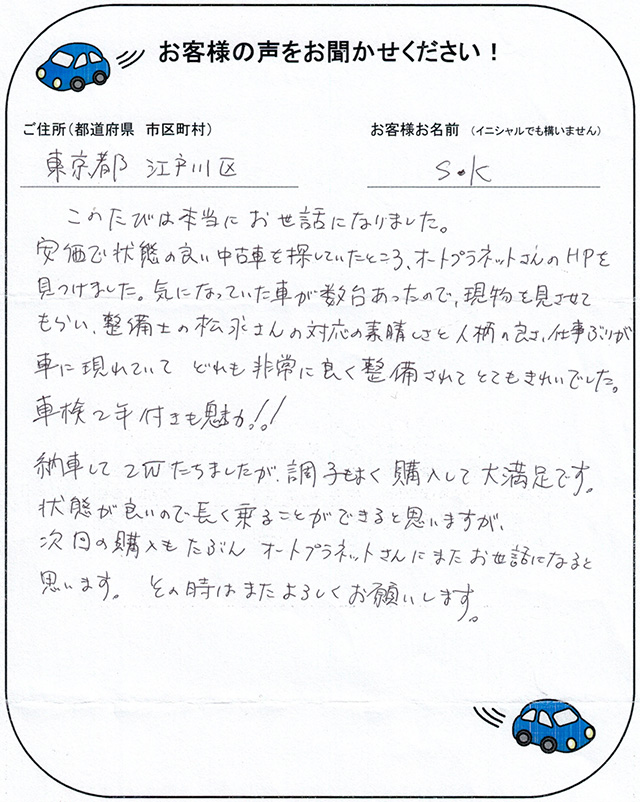 お客様の声をお聞かせください！
ご住所（都道府県　市区町村）
お客様お名前　（イニシャルでも構いません）
東京都 江戸川区
S・K
このたびは本当に お世話になりました。
安価で状態の良い中古車を探していたところ、オートプラネットさんのHPを
見つけました。気になっていた車が数台あったので、現物を見させて
もらい、整備士の松永さんの対応の素晴しさと人柄の良さ、仕事ぶりが
車に現れていて どれも非常に良く整備されてとてもきれいでした。
車検2年付きも魅力!!
納車して 2 たちましたが、調子もよく購入して大満足です。
状態が良いので長く乗ることができると思いますが、
次回の購入もたぶん オートプラネットさんにまたお世話になると
思います。 その時はまたよろしくお願いします。